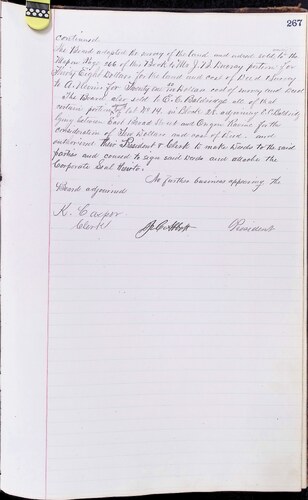 267
continued
The Board adopted the survey of the land and ordered sold to the
Page 156 of this Book to J. W. portion for
Eight Dollars for the land and cost of Deed & Survey
to for Twenty two Dollars cost of survey and Deed
The Board also sold to E. C. Baldridge all of that
certain portion of Lot No 14, in Block 26 adjoining
lying between East Broad Street and Avenue for the
consideration of Ten Dollars and cost of Deed. and
authorized their President & Clerk to make Deeds to the said
parties and caused to sign said Deeds and attach the
Corporate Seal thereto.
No further business appearing the
Board adjourned
K. Casper
Clerk
President